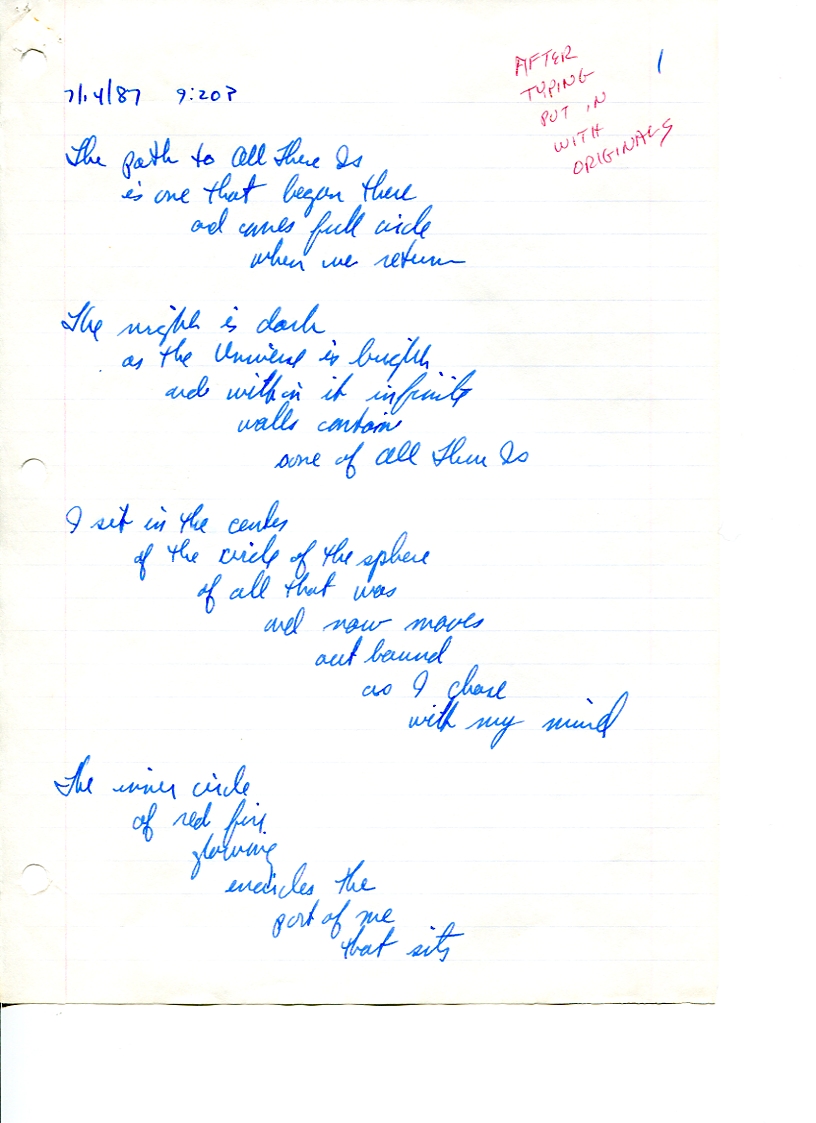 7/14/87 9:20P
1
AFTER
TYPING
PUT IN
WITH
ORIGINALS
The path to All There Is
is one that began there
and comes full circle
when we return
The night is dark
as the Universe is bright
and within it infinite
walls contain
some of All There Is
I sit in the center
of the circle of the sphere
of all that was
and now moves
out bound
as I chose
with my mind
The inner circle
of red fire
glowing
encircles the
part of me
that sits